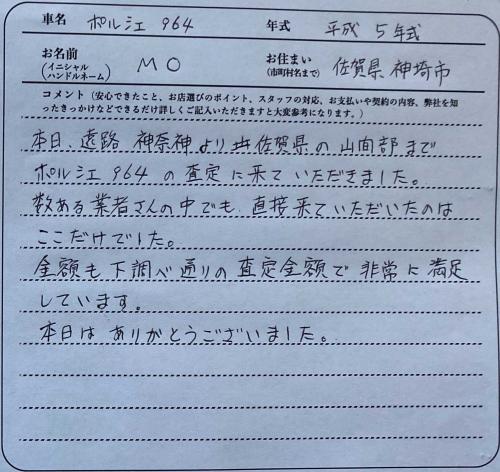 車名 ポルシェ 964 年式 平成 5年式
お名前 (イニシャル ハンドルネーム) M O お住まい (市町村名まで) 佐賀県 神埼市
コメント(安心できたこと、お店選びのポイント、スタッフの対応、お支払いや契約の内容、弊社を知
ったきっかけなどできるだけ詳しくご記入いただきますと大変参考になります。)
本日、遠路 神奈神より 佐賀県の山間部まで
ポルシェ964の査定に来ていただきました。
数ある業者さんの中でも、直接来ていただいたのは
ここだけでした。
金額も下調べ通りの査定金額で非常に満足
しています。
本日は ありがとうございました。